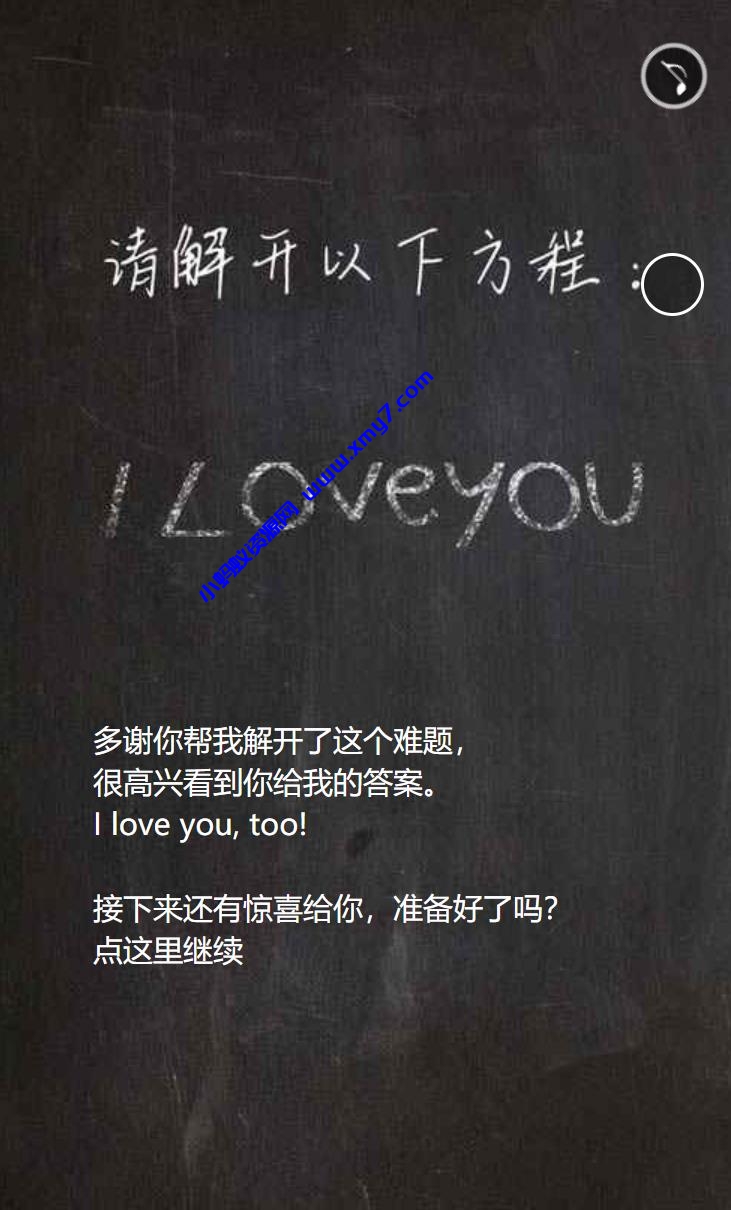 请解开以下方程：
I LOveyOU
小蚂蚁资源网 www.xmy7.com
多谢你帮我解开了这个难题，
很高兴看到你给我的答案。
I love you, too!
接下来还有惊喜给你，准备好了吗？
点这里继续